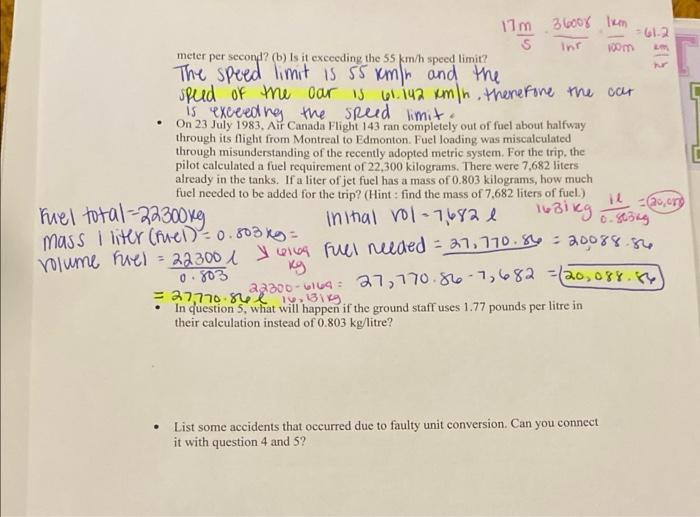 17m/s · 3600s/1hr · 1km/100m = 61.2 km/hr
meter per second? (b) Is it exceeding the 55 km/h speed limit?
The speed limit is 55 km/h and the
speed of the car is 61.142 km/h, therefore the car
is exceeding the speed limit.
• On 23 July 1983, Air Canada Flight 143 ran completely out of fuel about halfway
through its flight from Montreal to Edmonton. Fuel loading was miscalculated
through misunderstanding of the recently adopted metric system. For the trip, the
pilot calculated a fuel requirement of 22,300 kilograms. There were 7,682 liters
already in the tanks. If a liter of jet fuel has a mass of 0.803 kilograms, how much
fuel needed to be added for the trip? (Hint : find the mass of 7,682 liters of fuel.)
Fuel total = 22300kg
Initial vol - 7,682 l
1631kg 1l/0.803kg =
mass 1 liter (fuel) = 0.803 kg =
6169 kg
Fuel needed = 27,770.86 = 20088.86
volume fuel = 22300 l / 0.803
22300-6169 = 16,131kg
27,770.86 - 7,682 = 20,088.86
= 27,770.86 l
• In question 5, what will happen if the ground staff uses 1.77 pounds per litre in
their calculation instead of 0.803 kg/litre?
• List some accidents that occurred due to faulty unit conversion. Can you connect
it with question 4 and 5?